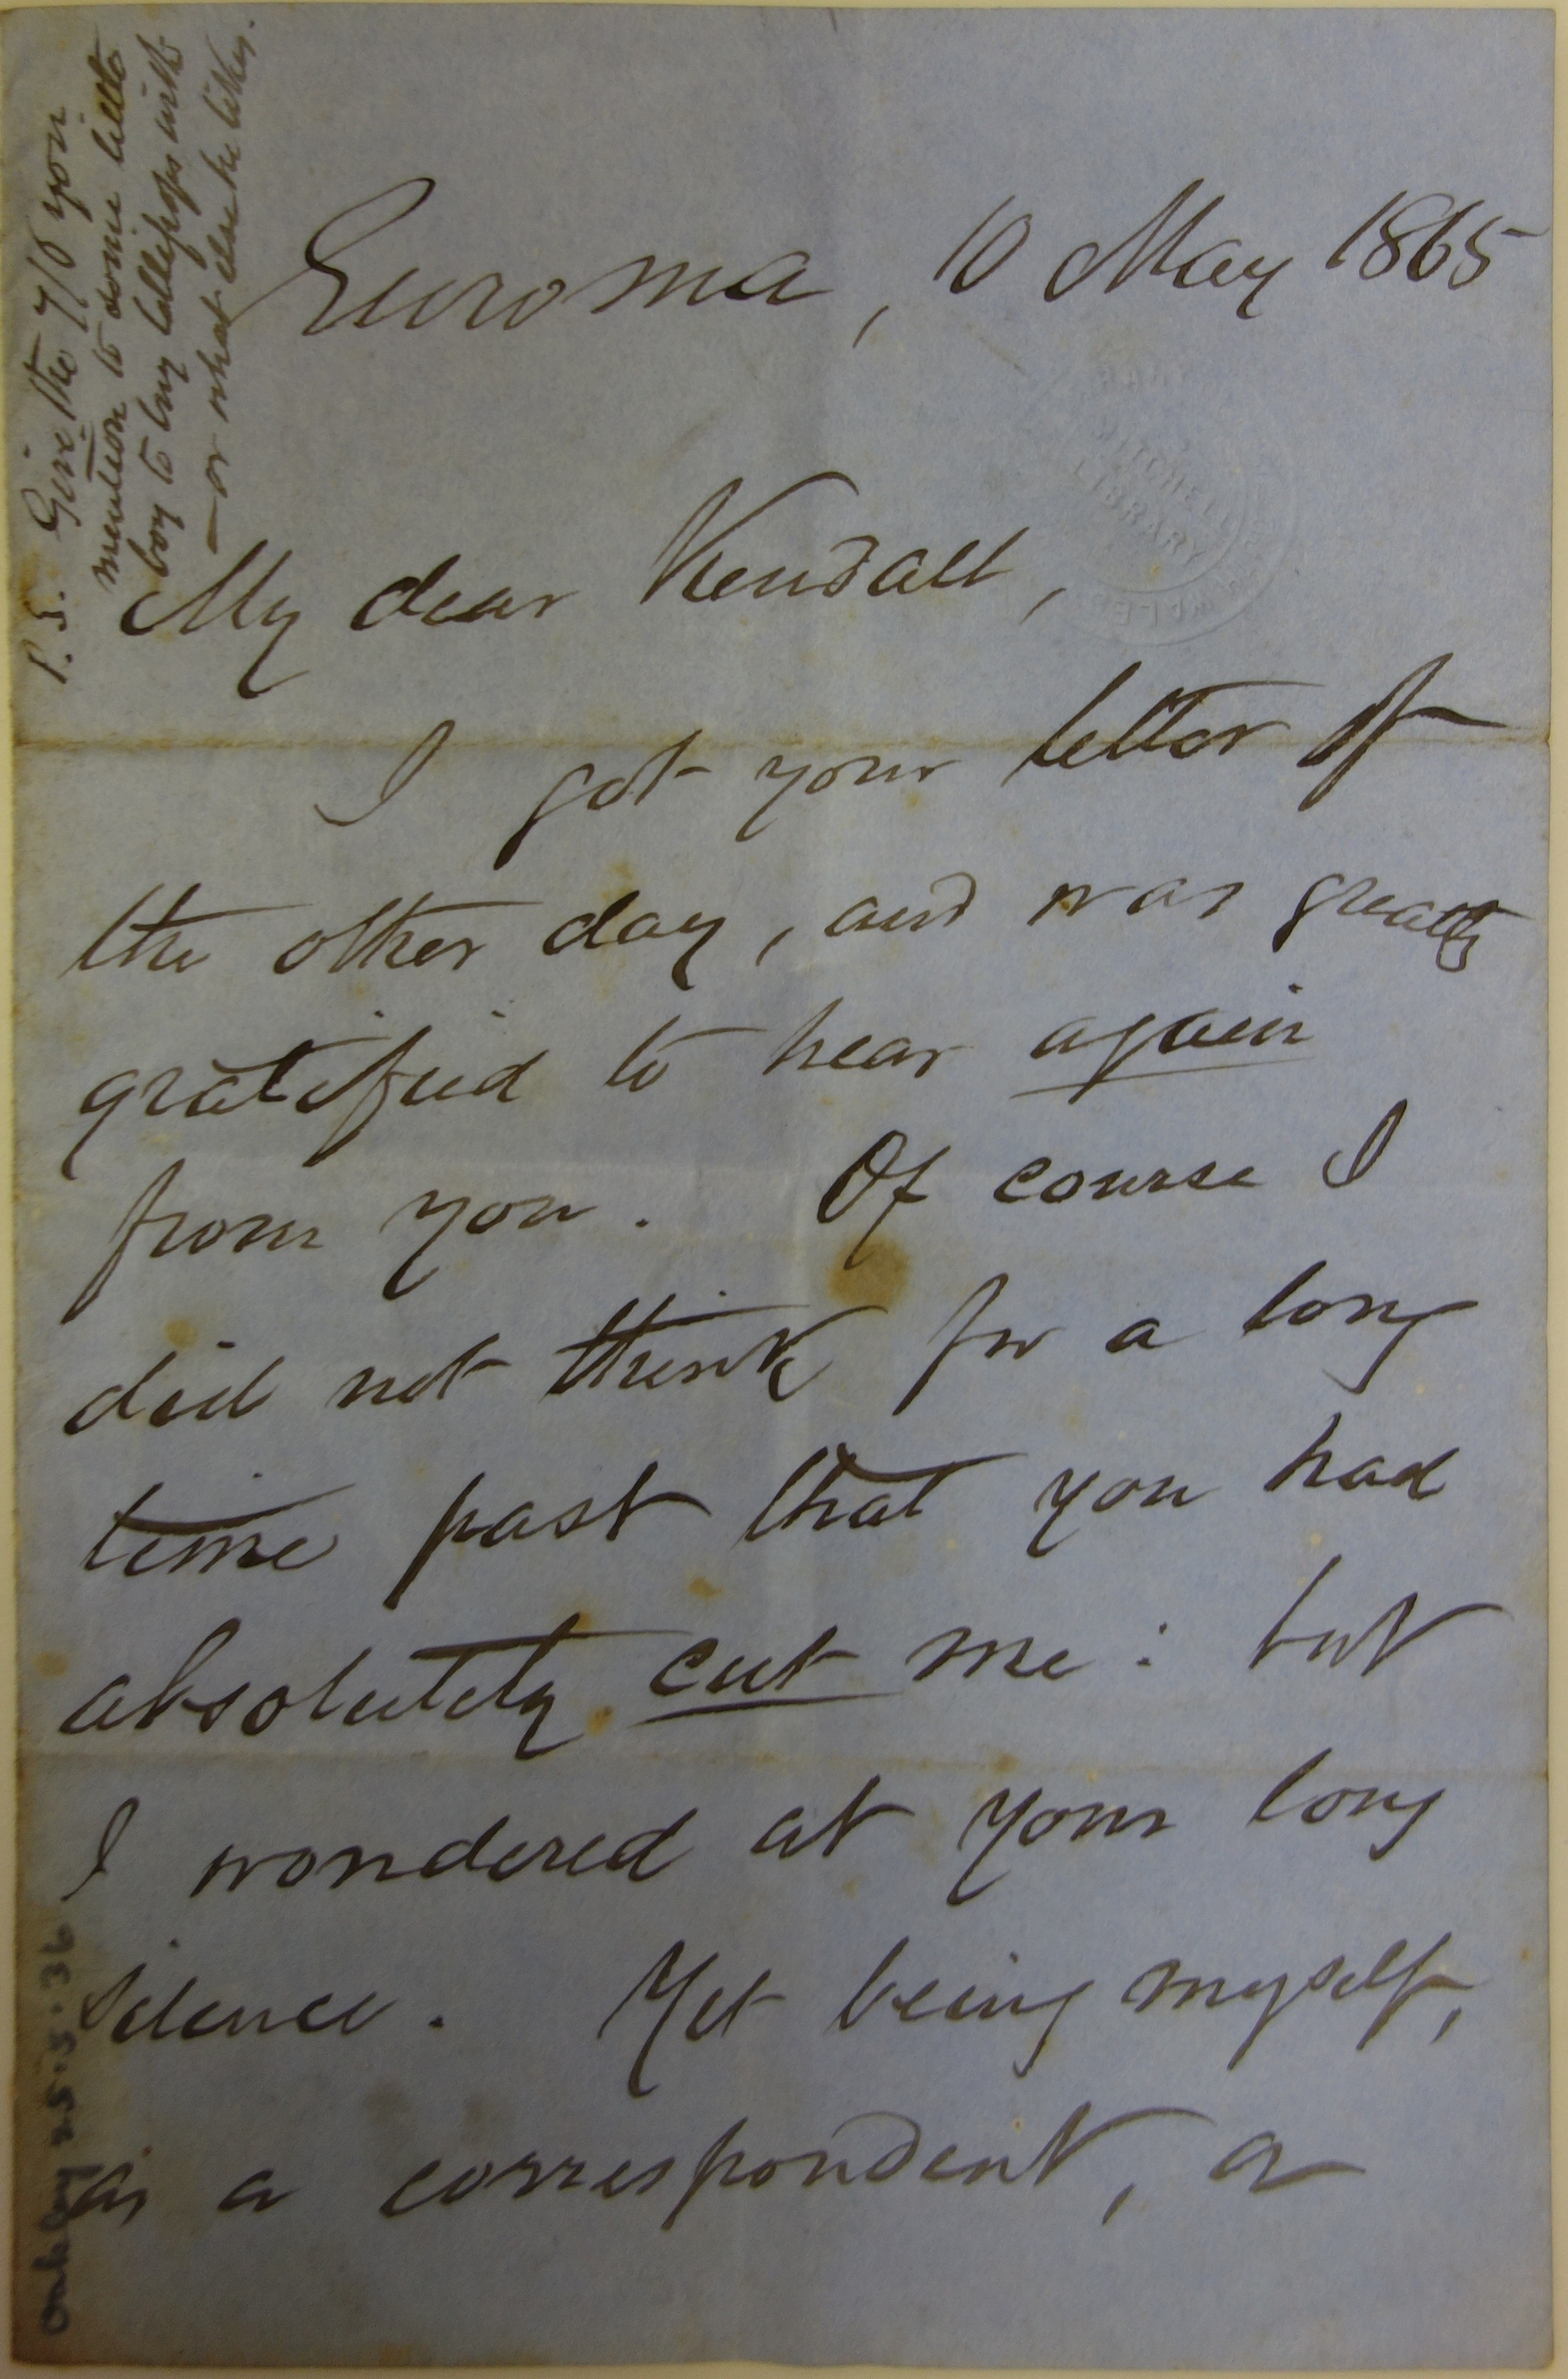 Euroma, 10 May 1865
My dear Kendall,
I got your letter of
the other day, and was greatly
gratified to hear again
from you. Of course I
did not think for a long
time past that you had
absolutely cut me: but
I wondered at your long
silence. Yet being myself,
as a correspondent, a
P.S. Give the 7/6 you
mention to some little
boy to buy lollipops with
— or what else he likes.
Oakley 25.3.36
MITCHELL
LIBRARY
WALES